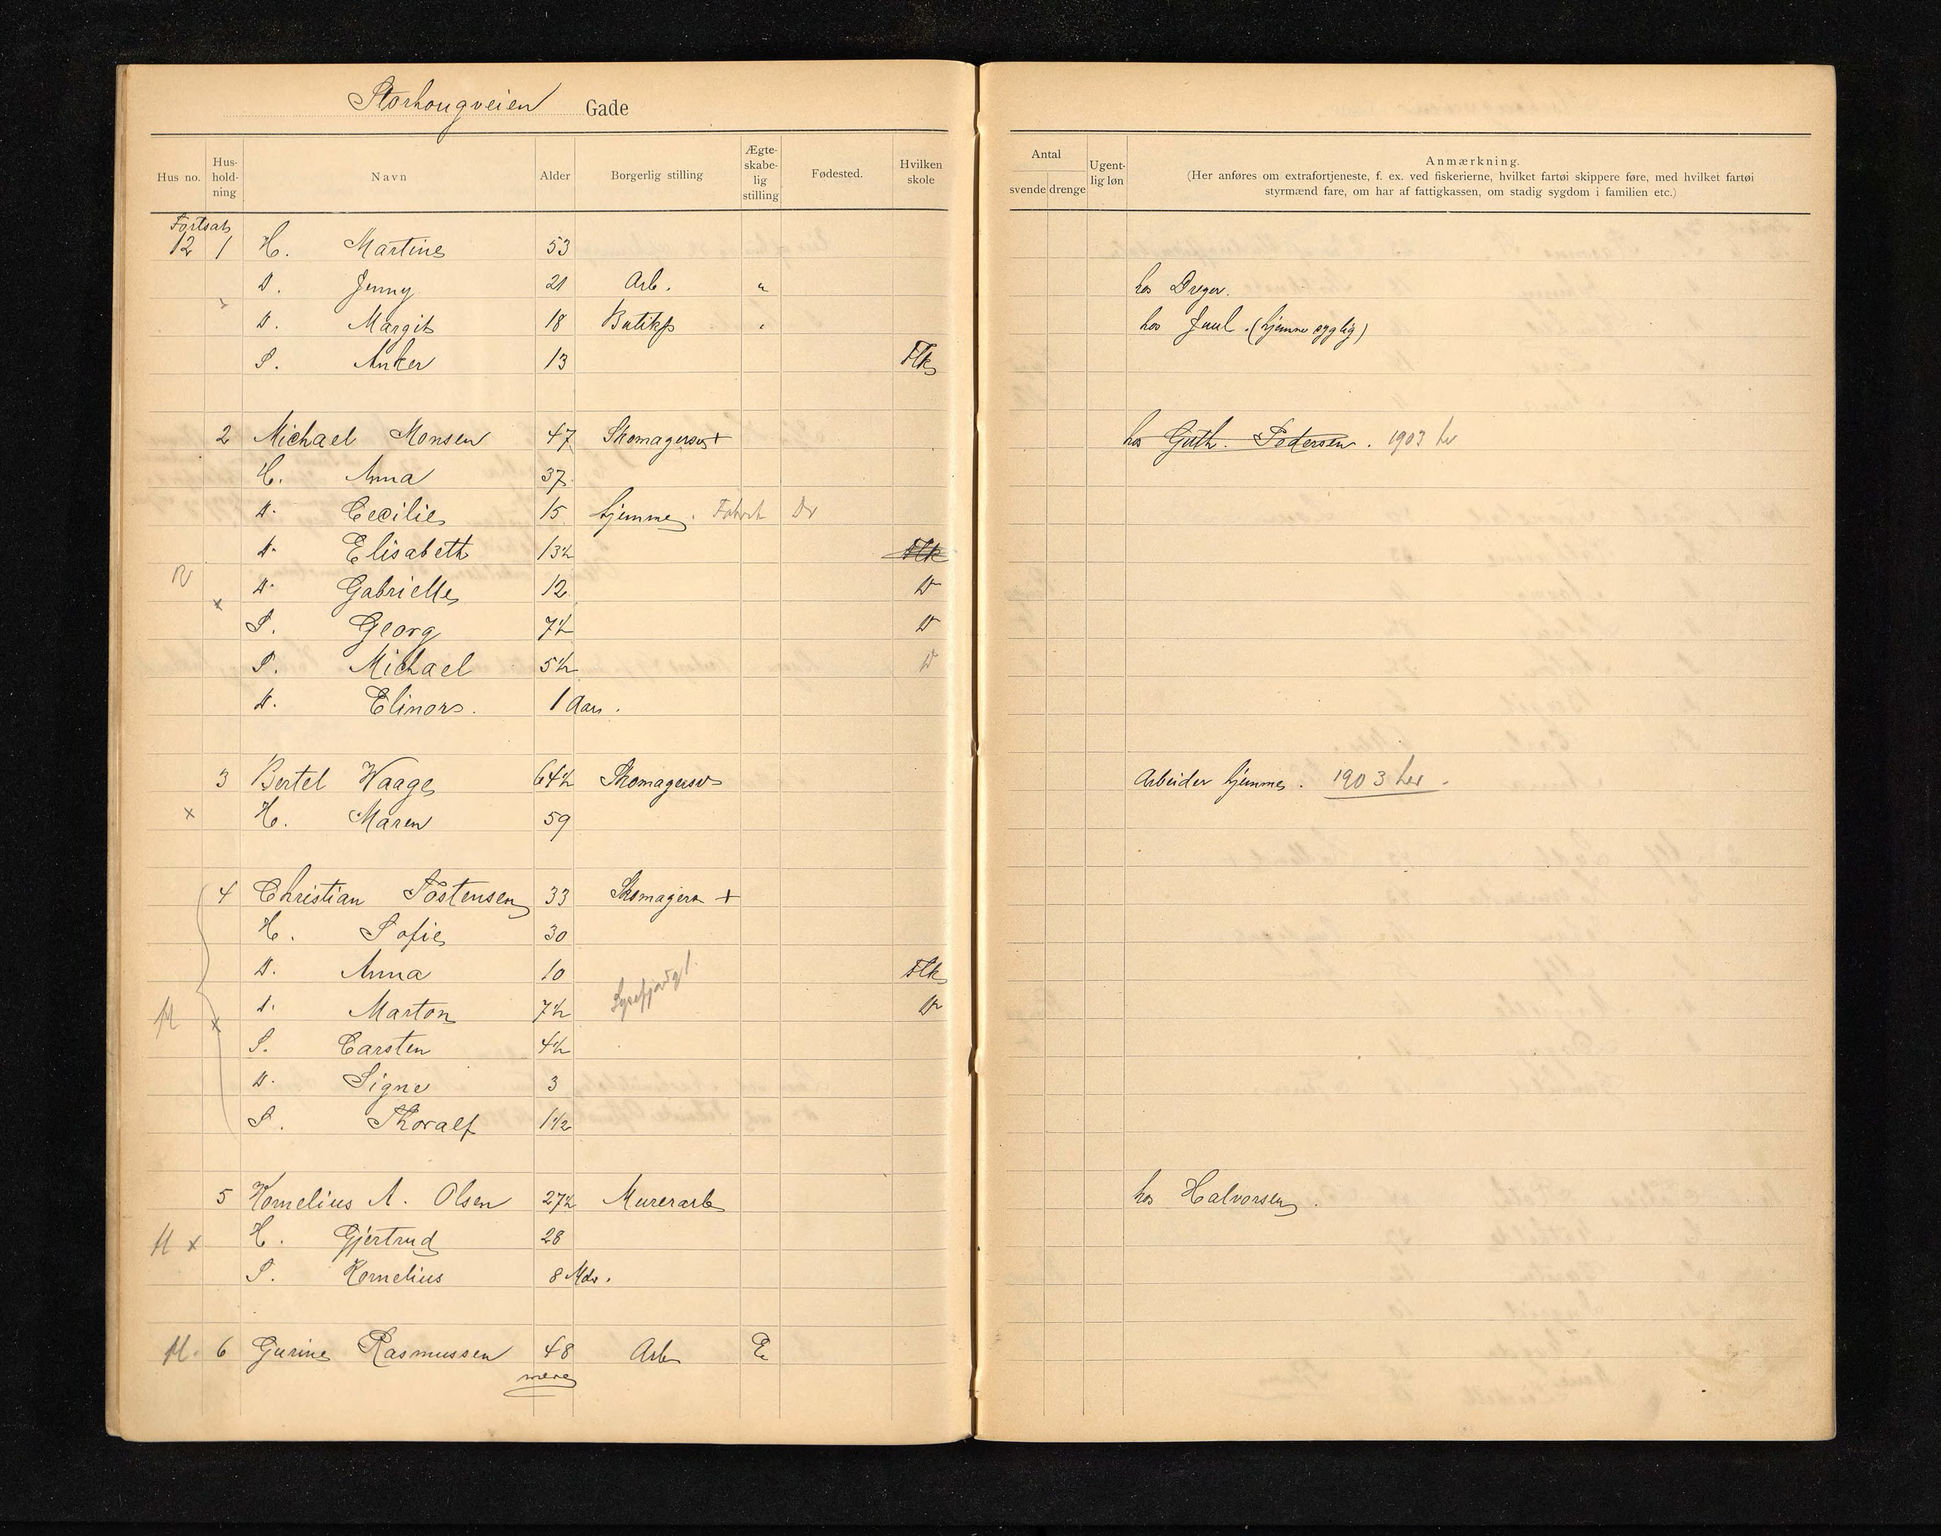 Storhougveien Gade
Hus no. Hus-hold-ning Navn Alder Borgerlig stilling Ægte-skabe-lig stilling Fødested. Hvilken skole
Antal svende drenge Ugent-lig løn Anmærkning.
(Her anføres om extrafortjeneste, f. ex. ved fiskerierne, hvilket fartøi skippere føre, med hvilket fartøi
styrmænd fare, om har af fattigkassen, om stadig sygdom i familien etc.)
Fortsat
12 1 H. Martine 53
D. Jenny 21 Arb. " hos Dreyer.
D. Margit 18 Butikp " hos Juul. (hjemme syglig)
S. Anker 13 Flk
2 Michael Monsen 47 Skomagersv + hos Guth. Pedersen. 1903 her
H. Anna 37
D. Cecilie 15 hjemme. Fabrik Do
D. Elisabeth 13½ Flk
D. Gabrielle 12 D
x
S. Georg 7½ D
S. Michael 5½ D
D. Elinor. 1 Aar.
3 Bertel Waage 64½ Skomagersv Arbeider hjemme. 1903 her.
x H. Maren 59
4 Christian Tostensen 33 Skomagersv +
H. Sofie 30
D. Anna 10 Flk
M x D. Marton 7½ D
S. Carsten 4½
D. Signe 3
S. Thoralf 1½
5 Kornelius A. Olsen 27½ Murerarb hos Halvorsen.
M x H. Gjertrud 28
S. Kornelius 8 Mdr.
M. 6 Gurine Rasmussen 48 Arb E
mere